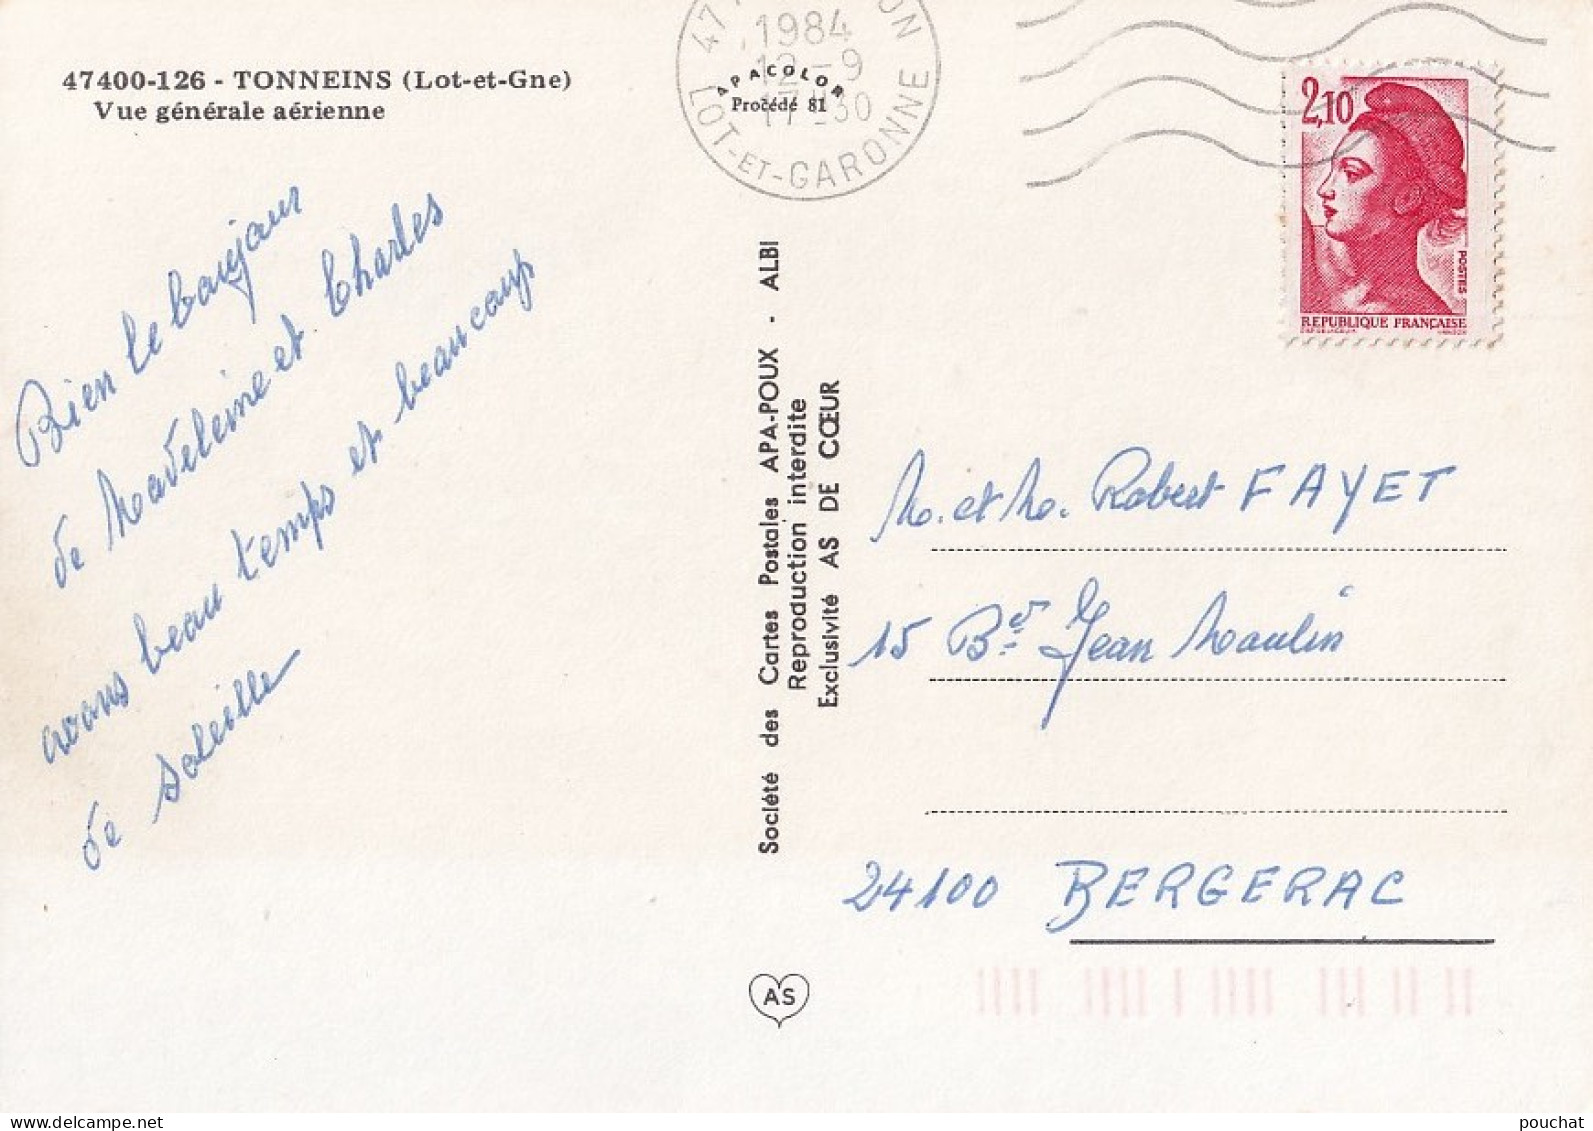 47400-126 - TONNEINS (Lot-et-Gne)
Vue générale aérienne
Bien le bonjour
de Madeleine et Charles
avons beau temps et beaucoup
de soleille
47
ON
1984
12-9
17 30
LOT-ET-GARONNE
APACOLOR
Procédé 81
2,10
POSTES
REPUBLIQUE FRANÇAISE
Société des Cartes Postales APA-POUX - ALBI
Reproduction interdite
Exclusivité AS DE CŒUR
M. et M. Robert FAYET
15 Bd Jean Moulin
24100 BERGERAC
AS
pouchat